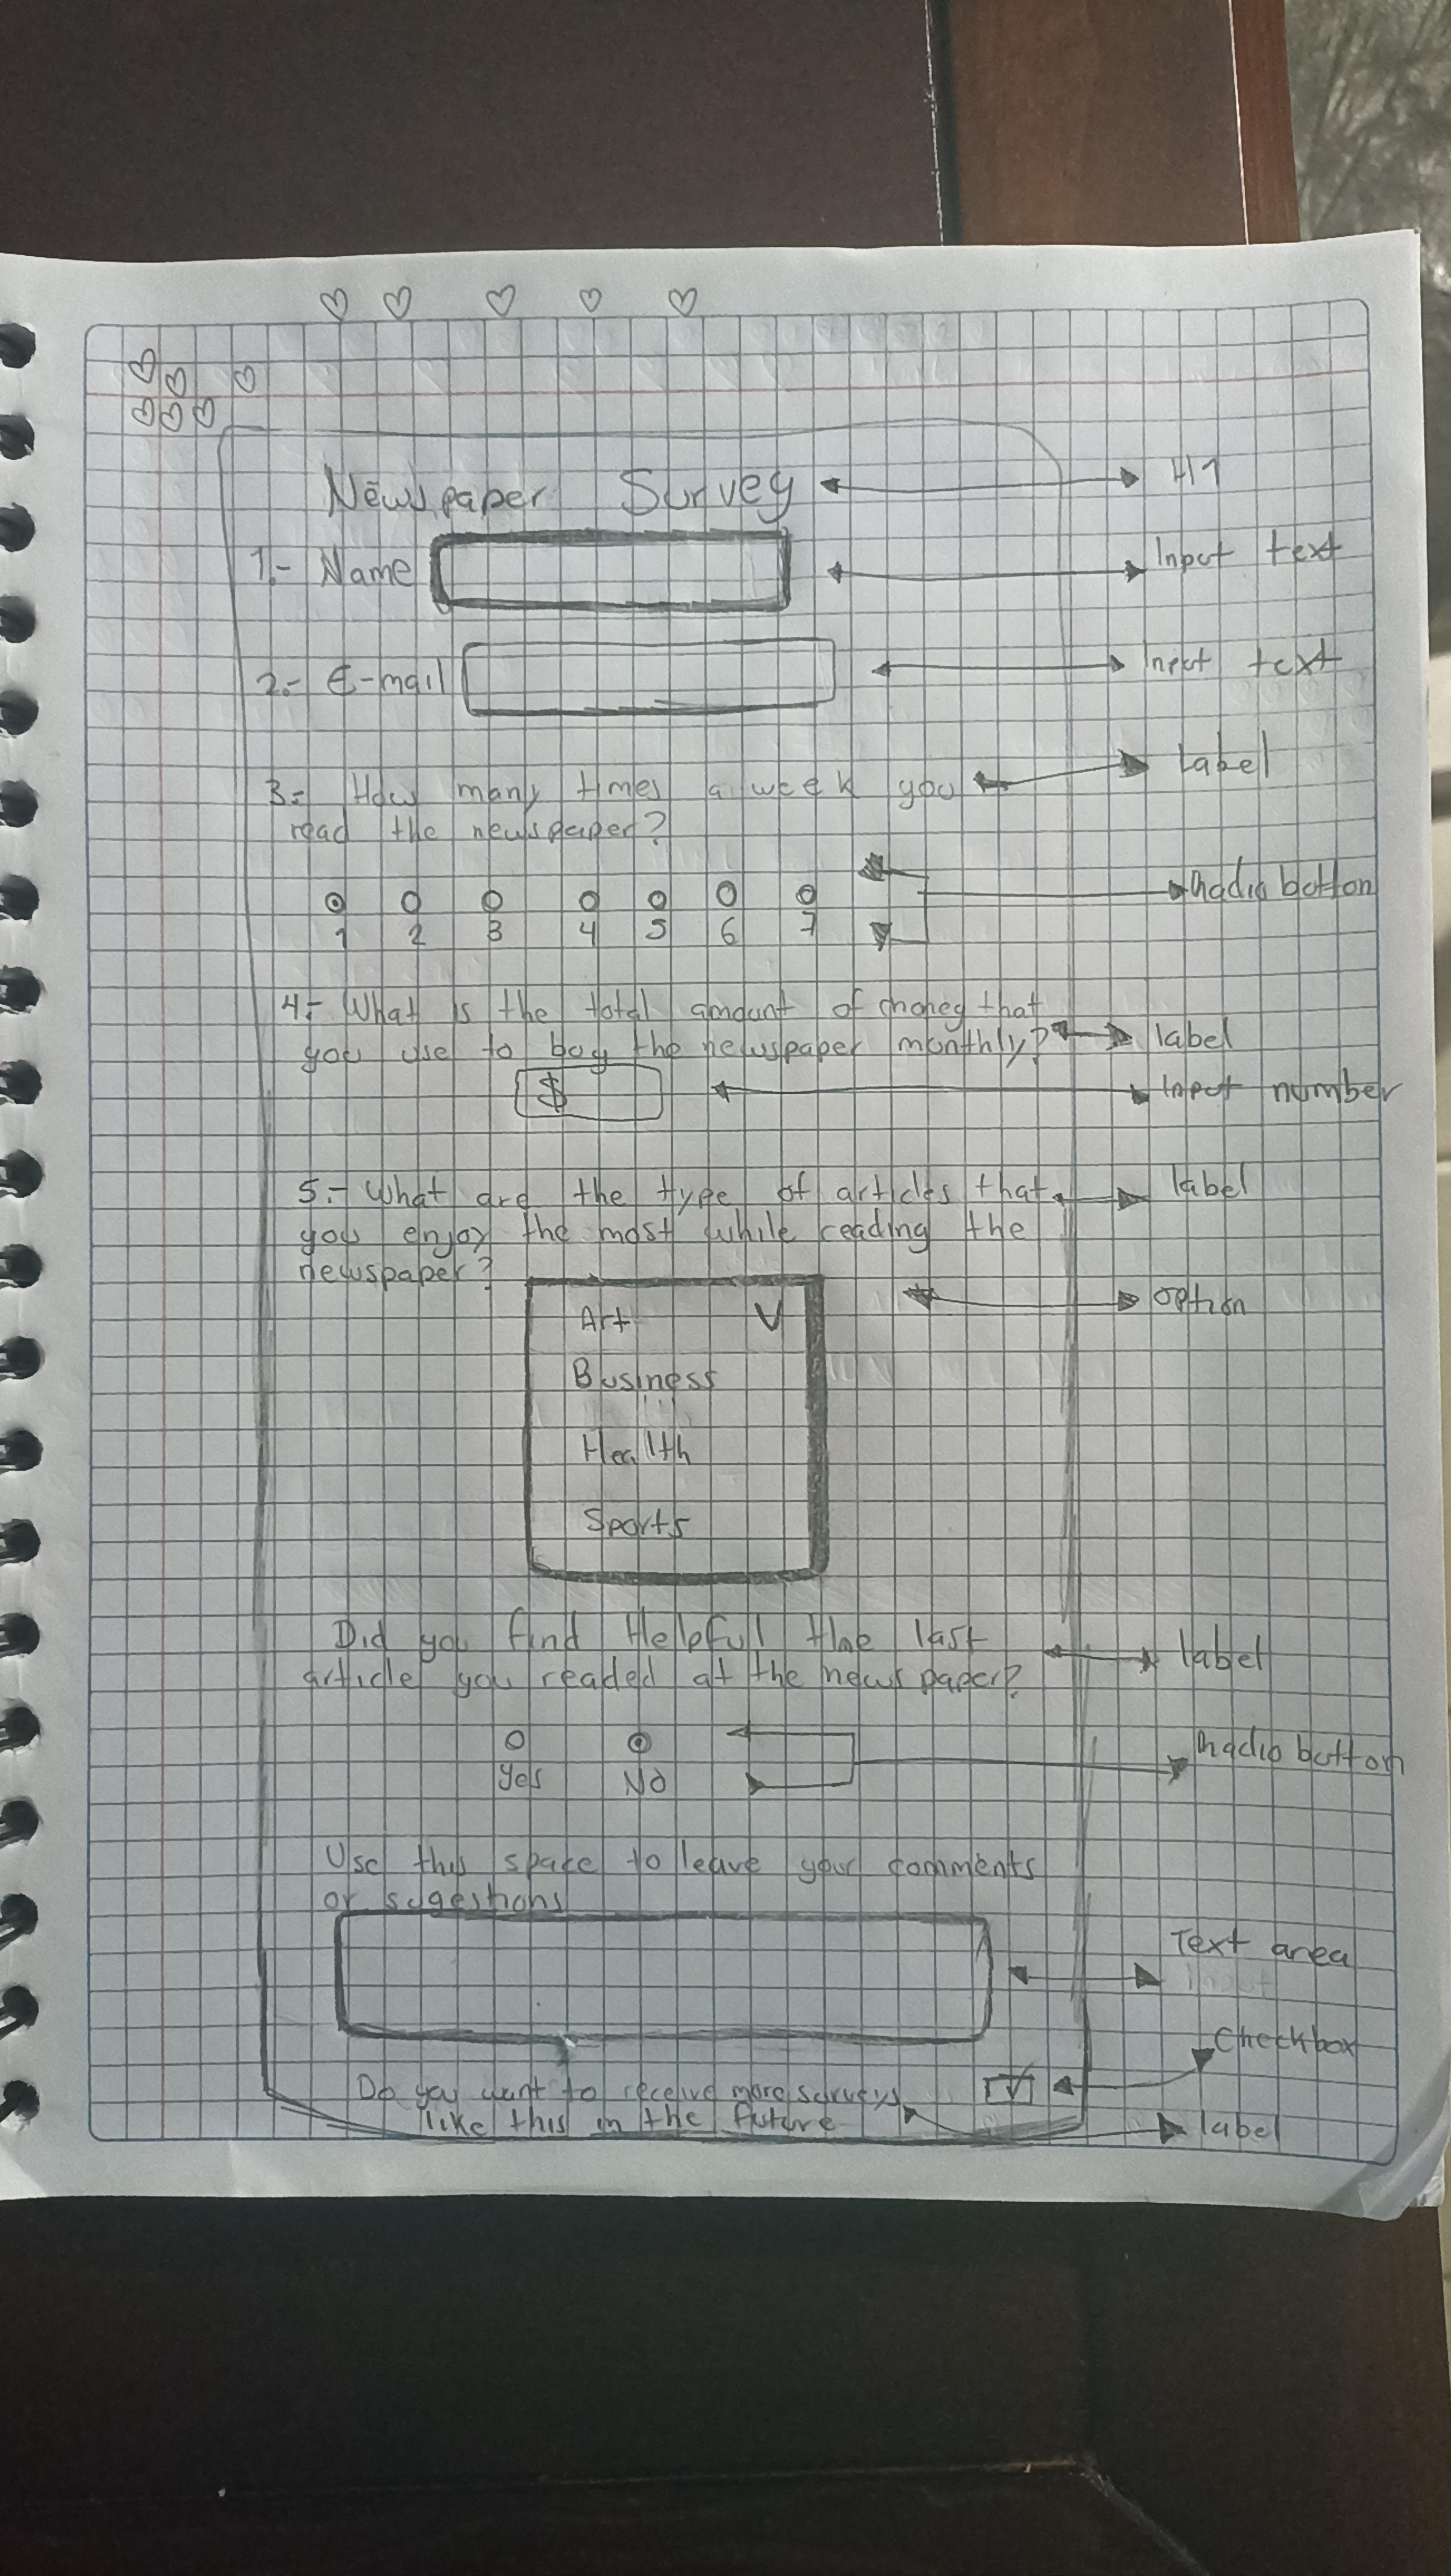 Newspaper Survey H1
1.- Name Input text
2.- E-mail Input text
3.- How many times a week you label
read the newspaper?
Radio button
1 2 3 4 5 6 7
4.- What is the total amount of money that
you use to buy the newspaper monthly? label
$ Input number
5.- What are the type of articles that label
you enjoy the most while reading the
newspaper?
Art V option
Business
Health
Sports
Did you find Helpful the last
article you readed at the newspaper? label
Radio button
Yes No
Use this space to leave your comments
or sugestions
Text area
Checkbox
Do you want to receive more surveys
like this in the future label